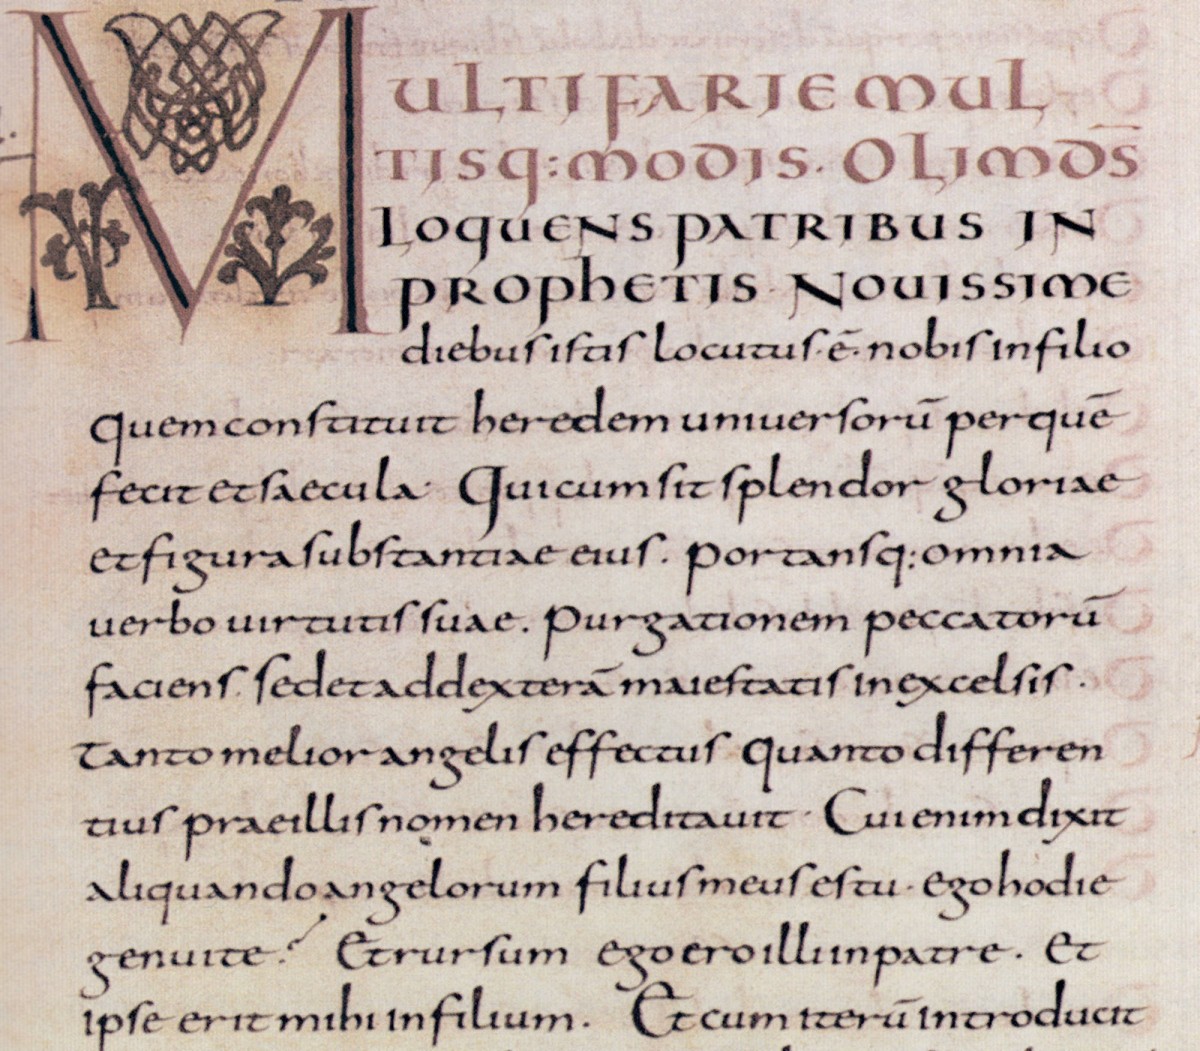 MULTIFARIE MUL
TISQ: MODIS. OLIM D̄S
LOQUENS PATRIBUS IN
PROPHETIS. NOUISSIME
diebus istis locutus. ē. nobis in filio
quem constituit heredem uniuersorū per quē
fecit et saecula. Qui cum sit splendor gloriae
et figura substantiae eius. portansq: omnia
uerbo uirtutis suae. Purgationem peccatorū
faciens. sedet ad dexterā maiestatis in excelsis.
Tanto melior angelis effectus quanto differen
tius prae illis nomen hereditauit. Cui enim dixit
aliquando angelorum filius meus es tu. ego hodie
genui te? Et rursum ego ero illi in patre. Et
ipse erit mihi in filium. Et cum iterū introducit